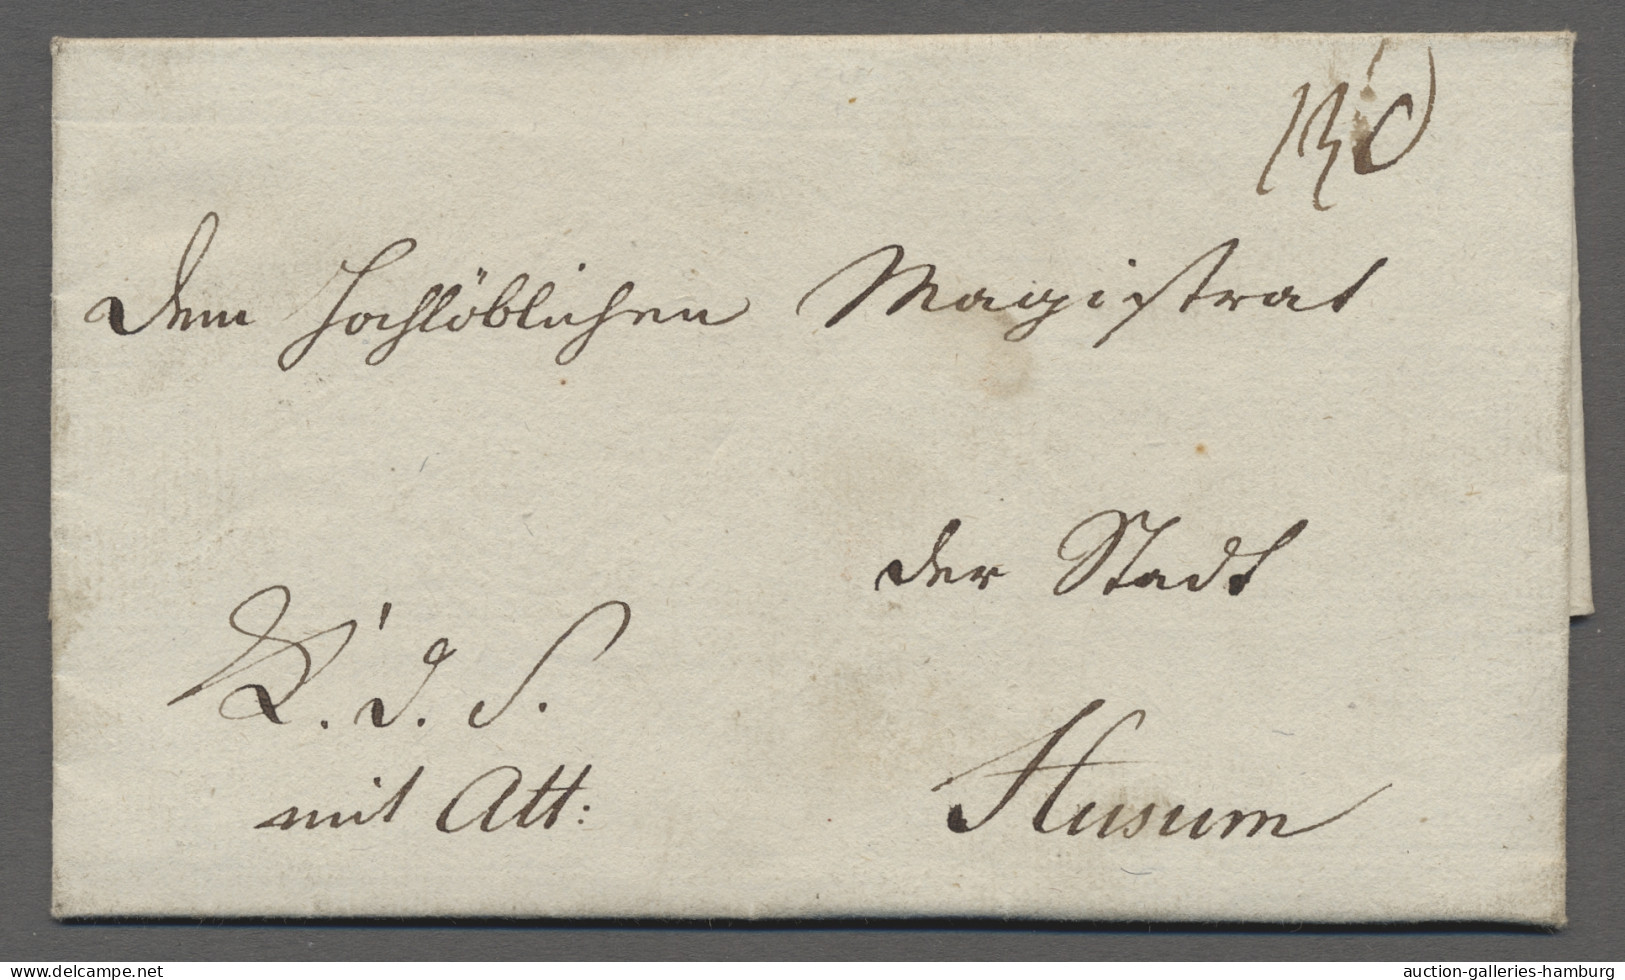 Dem Hochlöblichen Magistrat
der Stadt
K. d. S.
mit Att:
Husum
delcampe.net
auction-galleries-hamburg